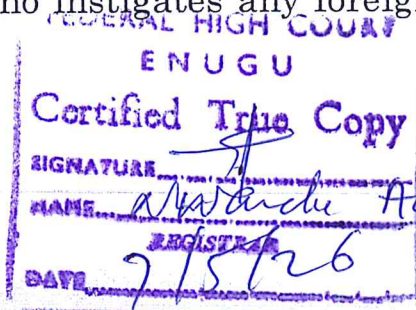 no instigates any foreig
FEDERAL HIGH COURT
ENUGU
Certified True Copy
SIGNATURE
NAME
REGISTRAR
DATE 7/5/26